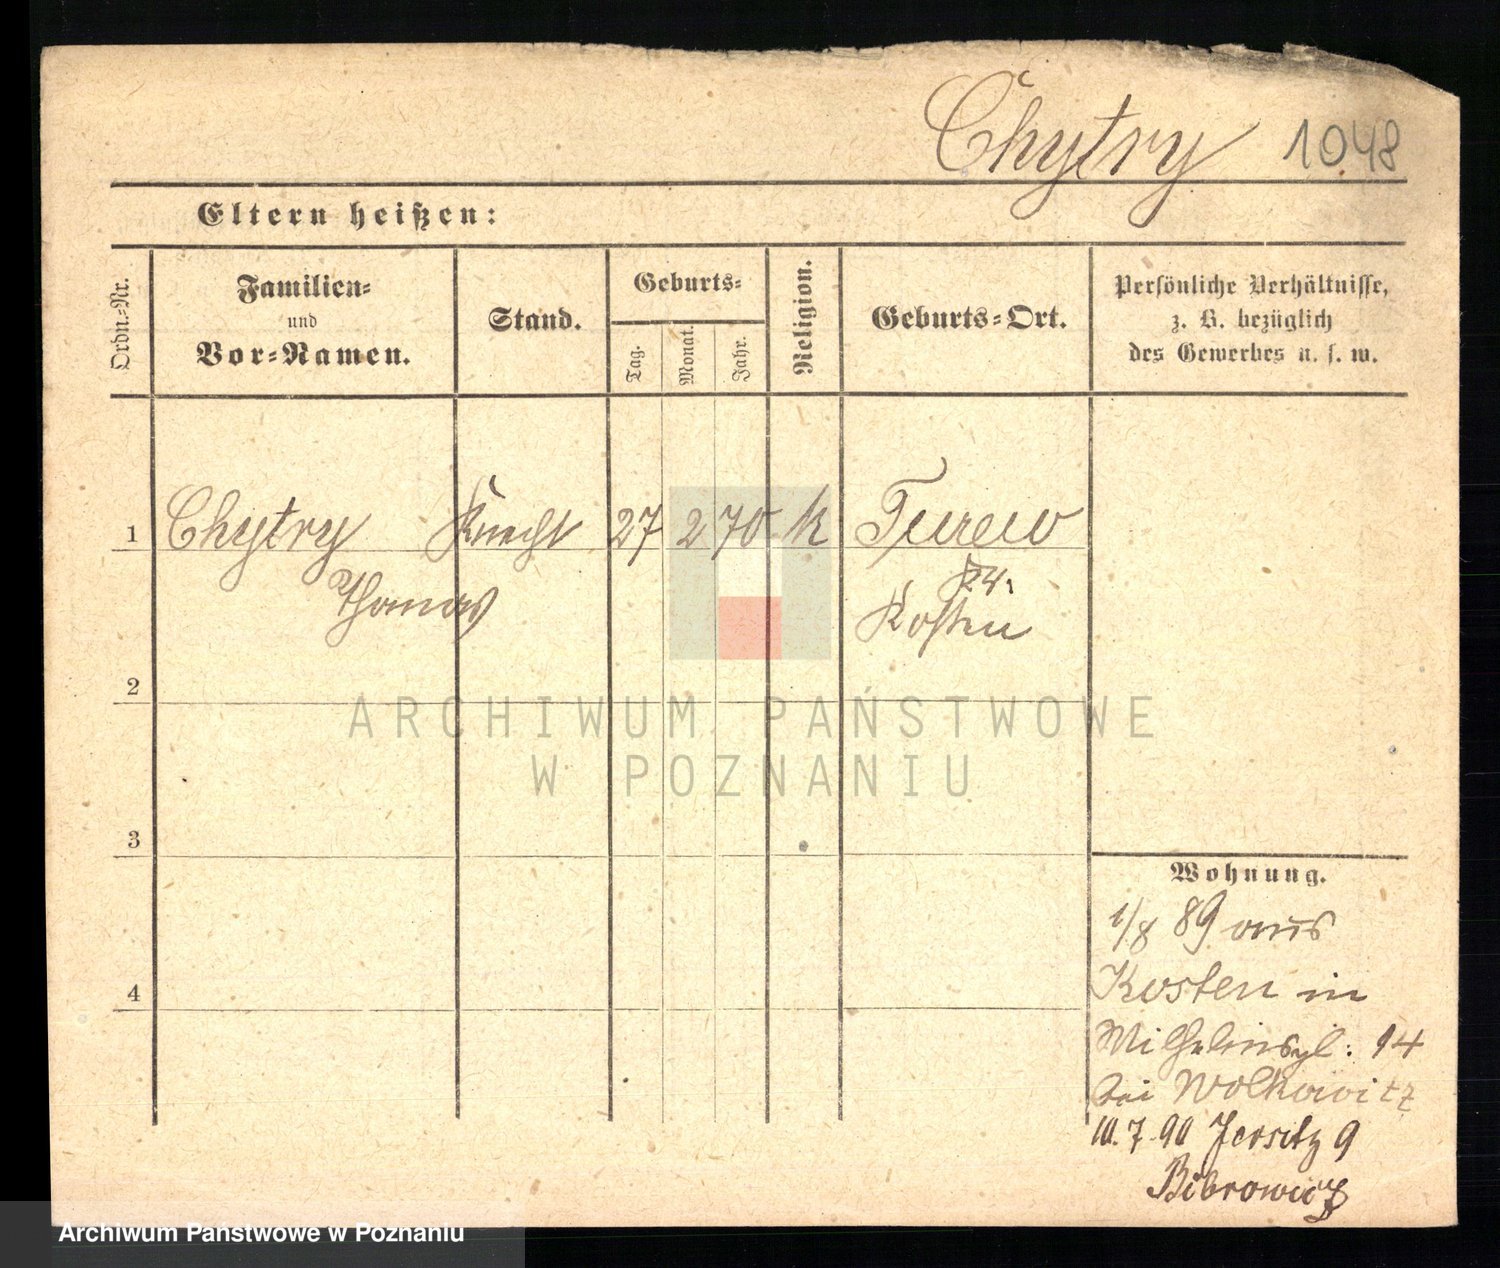 Chytry 1048
Eltern heißen:
Ordn.-Nr.
Familien-
und
Vor-Namen.
Stand.
Geburts-
Tag.
Monat.
Jahr.
Religion.
Geburts-Ort.
Persönliche Verhältnisse,
z. B. bezüglich
des Gewerbes u. s. w.
1 Chytry Knecht 27 2 70 k Turew
Thomas
Kr.
Kosten
2
ARCHIWUM PAŃSTWOWE
W POZNANIU
3
Wohnung.
1/8 89 aus
Kosten in
4
Wilhelmspl: 14
bei Wolkowitz
10.7.90 Jersitz 9
Bibrowicz
Archiwum Państwowe w Poznaniu